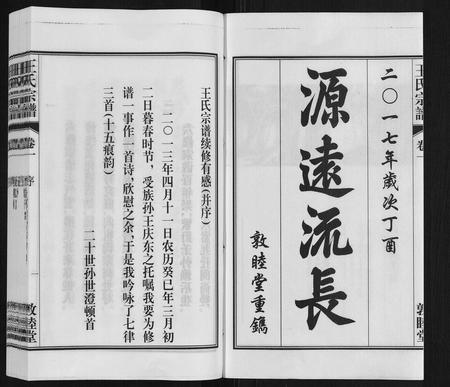 王氏宗譜
卷一
二〇一七年歲次丁酉
源遠流長
敦睦堂重鐫
敦睦堂
王氏宗譜续修有感(并序)
二〇一三年四月十一日农历癸巳年三月初
二日暮春时节，受族孙王庆东之托嘱我要为修
谱一事作一首诗，欣慰之余，于是我吟咏了七律
三首(十五痕韵)
二十世孙世澄顿首
王氏宗譜
卷一
序
一
敦睦堂